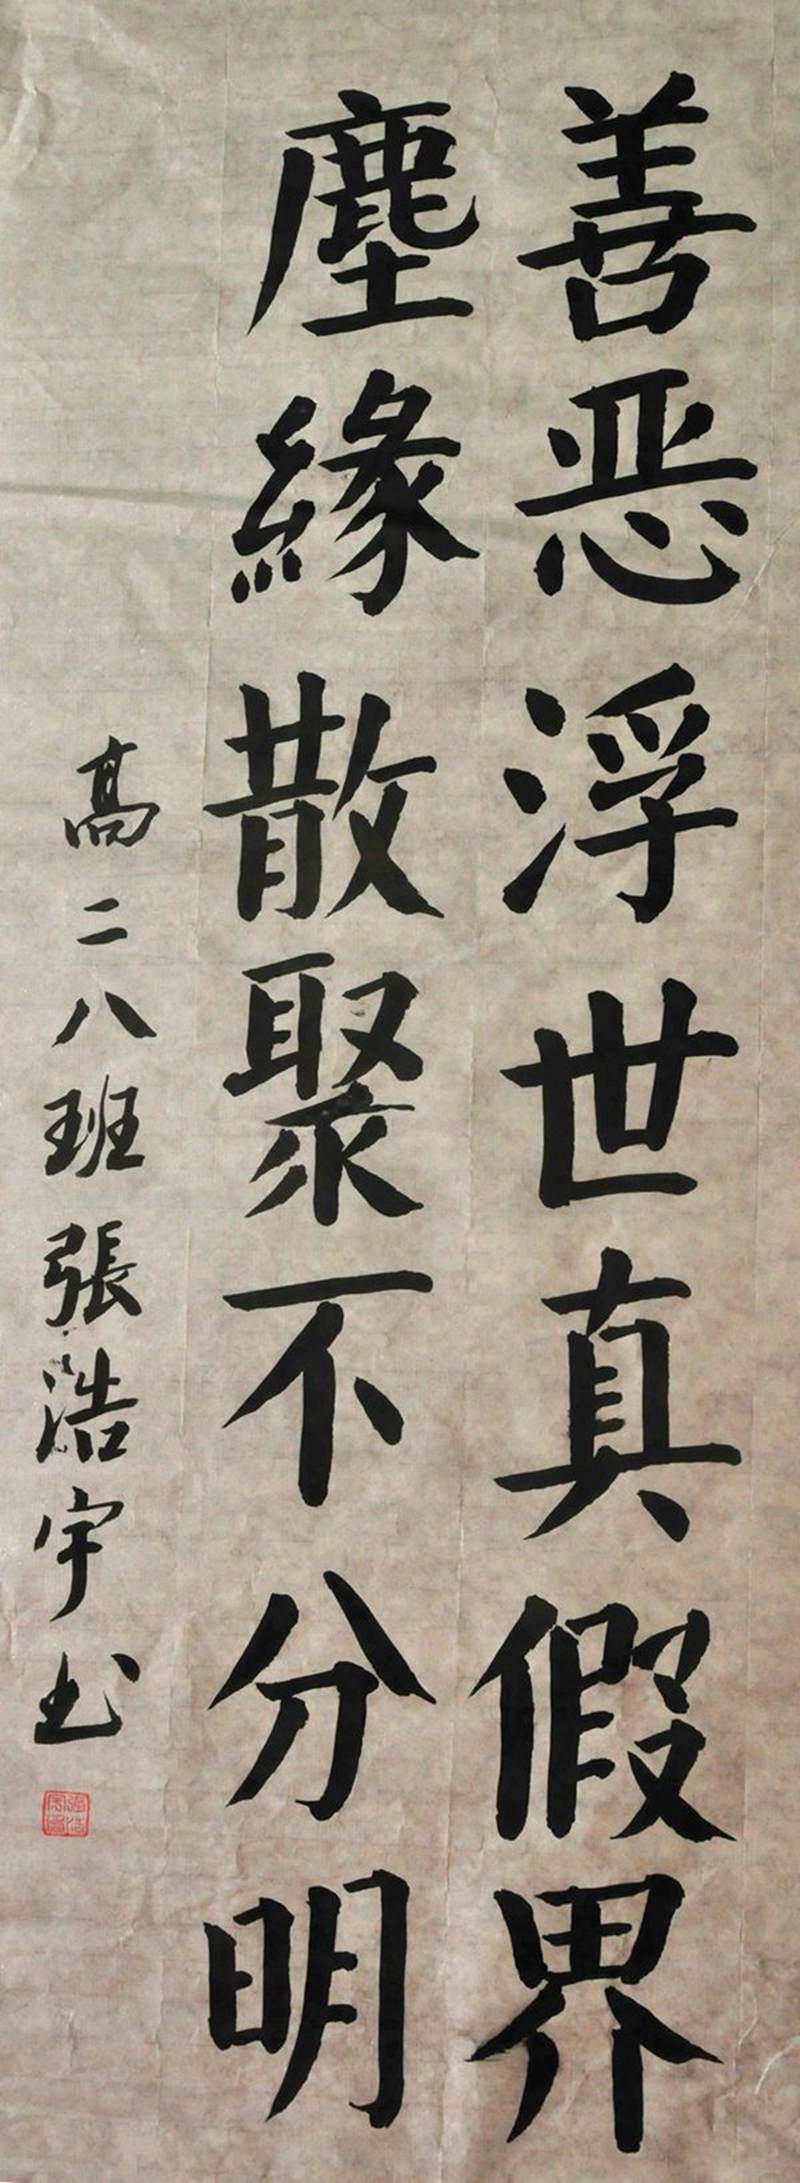 善恶浮世真假界
塵緣散聚不分明
高二八班張浩宇书